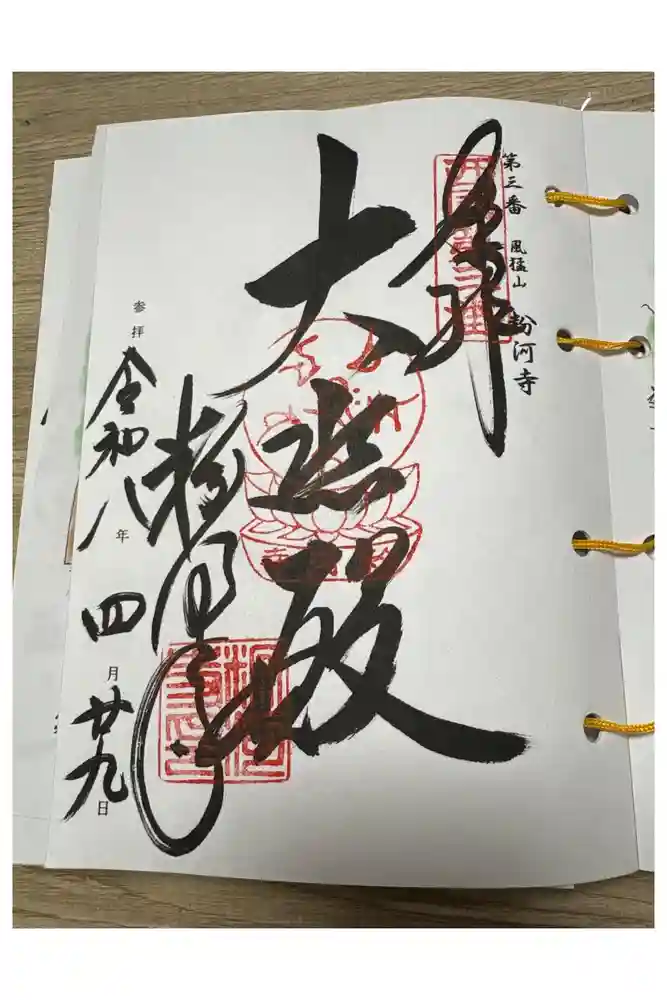 第三番 風猛山 粉河寺
奉拝
大悲殿
粉河寺
参拝 令和八年四月廿九日